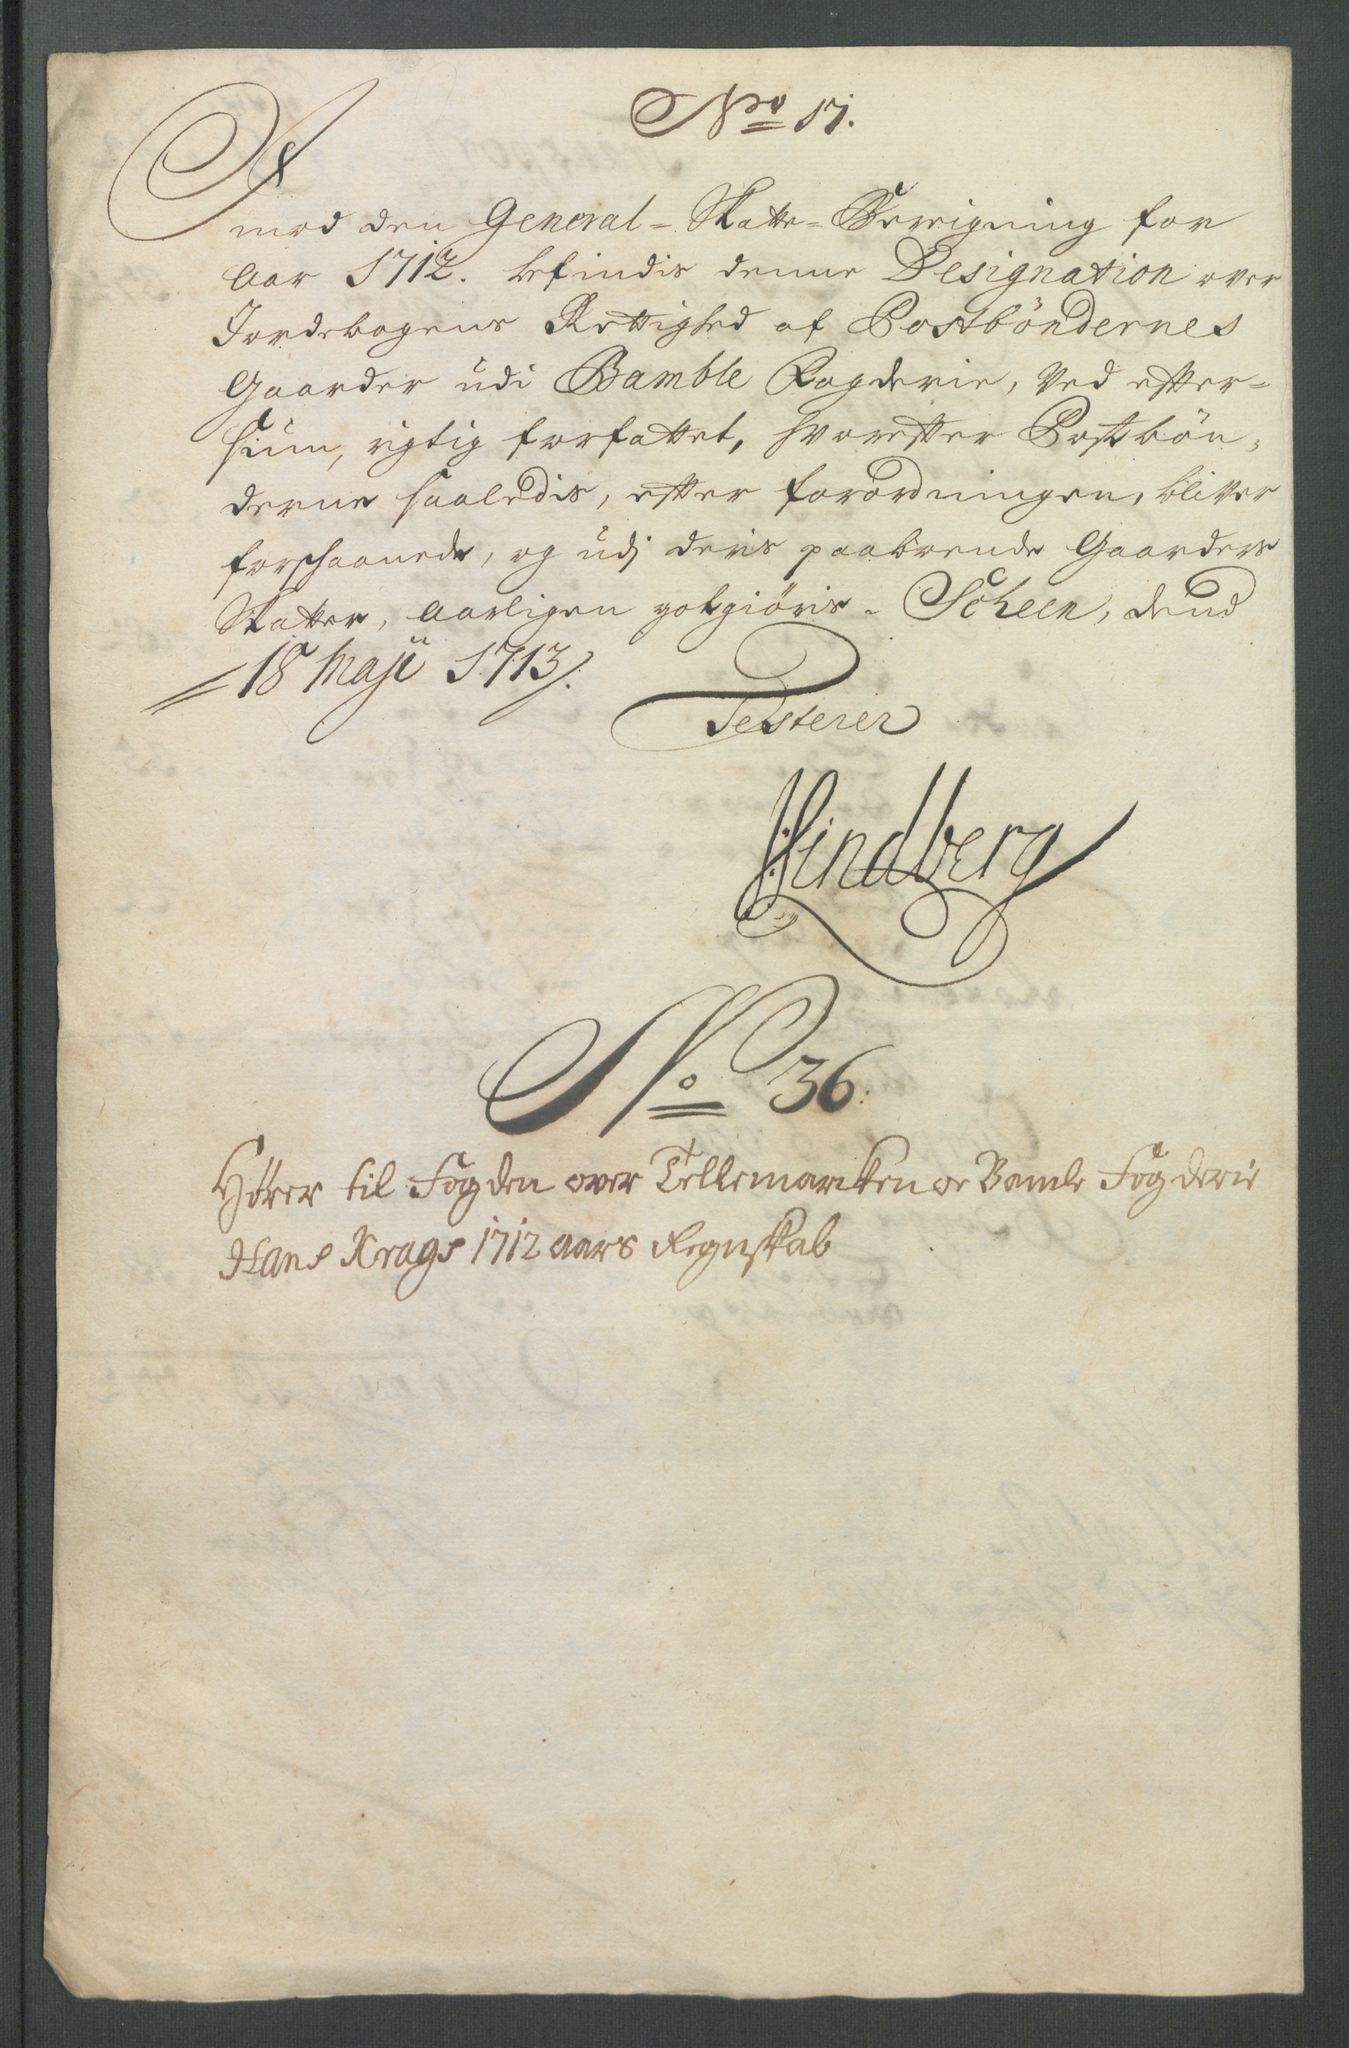 Nro 17.
Imod den General-Skatte-Bereigning for
Aar 1712. befindis denne Designation over
Jordebogens Rettighed af Postböndernes
Gaarder udi Bamble Fogderie, Ved efter-
siun, rigtig forfattet, hvorefter Postbön-
derne saaledis, efter forordningen, bliver
forschaanede, og udj deris paaboende Gaarders
Skatter, Aarligen gotgiöris. Scheen, dend
18 Maji 1713.
Testerer
HLindberg
No 36:
Hörer til Fogden over Tellemarcken oc Bamle Fogderie
Hans Krags 1712 aars Regnskab